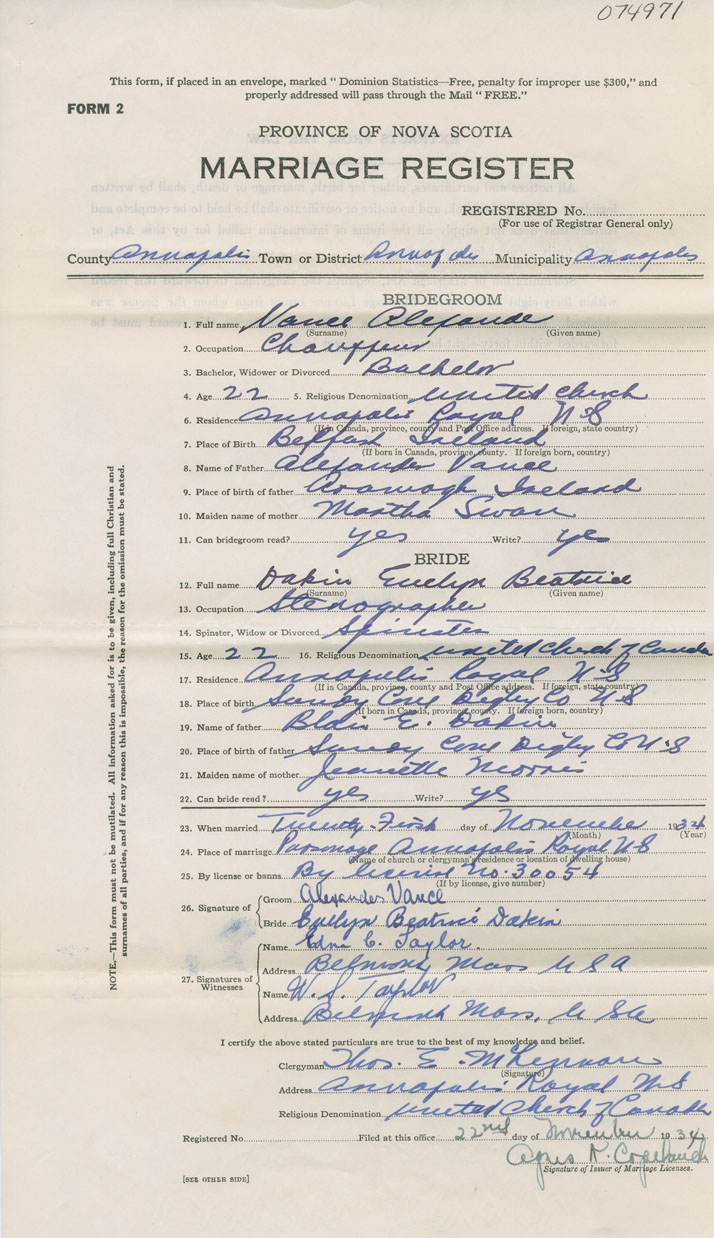 074971
This form, if placed in an envelope, marked "Dominion Statistics—Free, penalty for improper use $300," and
properly addressed will pass through the Mail "FREE."
FORM 2
PROVINCE OF NOVA SCOTIA
MARRIAGE REGISTER
REGISTERED No.
(For use of Registrar General only)
County Annapolis Town or District Annapolis Municipality Annapolis
BRIDEGROOM
1. Full name Vance Alexander
(Surname) (Given name)
2. Occupation Chauffeur
3. Bachelor, Widower or Divorced Bachelor
4. Age 22 5. Religious Denomination United Church
6. Residence Annapolis Royal N S
(If in Canada, province, county and Post Office address. If foreign, state country)
7. Place of Birth Belfast Ireland
(If born in Canada, province, county. If foreign born, country)
8. Name of Father Alexander Vance
9. Place of birth of father Ireland
10. Maiden name of mother Martha Swan
11. Can bridegroom read? yes Write? yes
BRIDE
12. Full name Dakin Evelyn Beatrice
(Surname) (Given name)
13. Occupation Stenographer
14. Spinster, Widow or Divorced Spinster
15. Age 22 16. Religious Denomination United Church of Canada
17. Residence Annapolis Royal N-S
(If in Canada, province, county and Post Office address. If foreign, state country)
18. Place of birth Sandy Cove Digby Co N S
(If born in Canada, province, county. If foreign born, country)
19. Name of father E. Dakin
20. Place of birth of father Cove Digby Co N.S
21. Maiden name of mother Jeanette Morris
22. Can bride read? yes Write? yes
23. When married Twenty-First day of November 1934
(Month) (Year)
24. Place of marriage Parsonage Annapolis Royal N S
(Name of church or clergyman's residence or location of dwelling house)
25. By license or banns By license No. 30054
(If by license, give number)
26. Signature of Groom Alexander Vance
Bride Evelyn Beatrice Dakin
27. Signatures of Witnesses
Name C. Taylor.
Address Belmont Mass U S A
Name W. S. Taylor
Address Belmont Mass. U SA
I certify the above stated particulars are true to the best of my knowledge and belief.
Clergyman Thos. E.
(Signature)
Address Annapolis Royal N S
Religious Denomination United Church of Canada
Registered No. Filed at this office 22nd day of November 1934
Agnes N. Copeland
Signature of Issuer of Marriage Licenses.
[SEE OTHER SIDE]
NOTE.—This form must not be mutilated. All information asked for is to be given, including full Christian and
surnames of all parties, and if for any reason this is impossible, the reason for the omission must be stated.